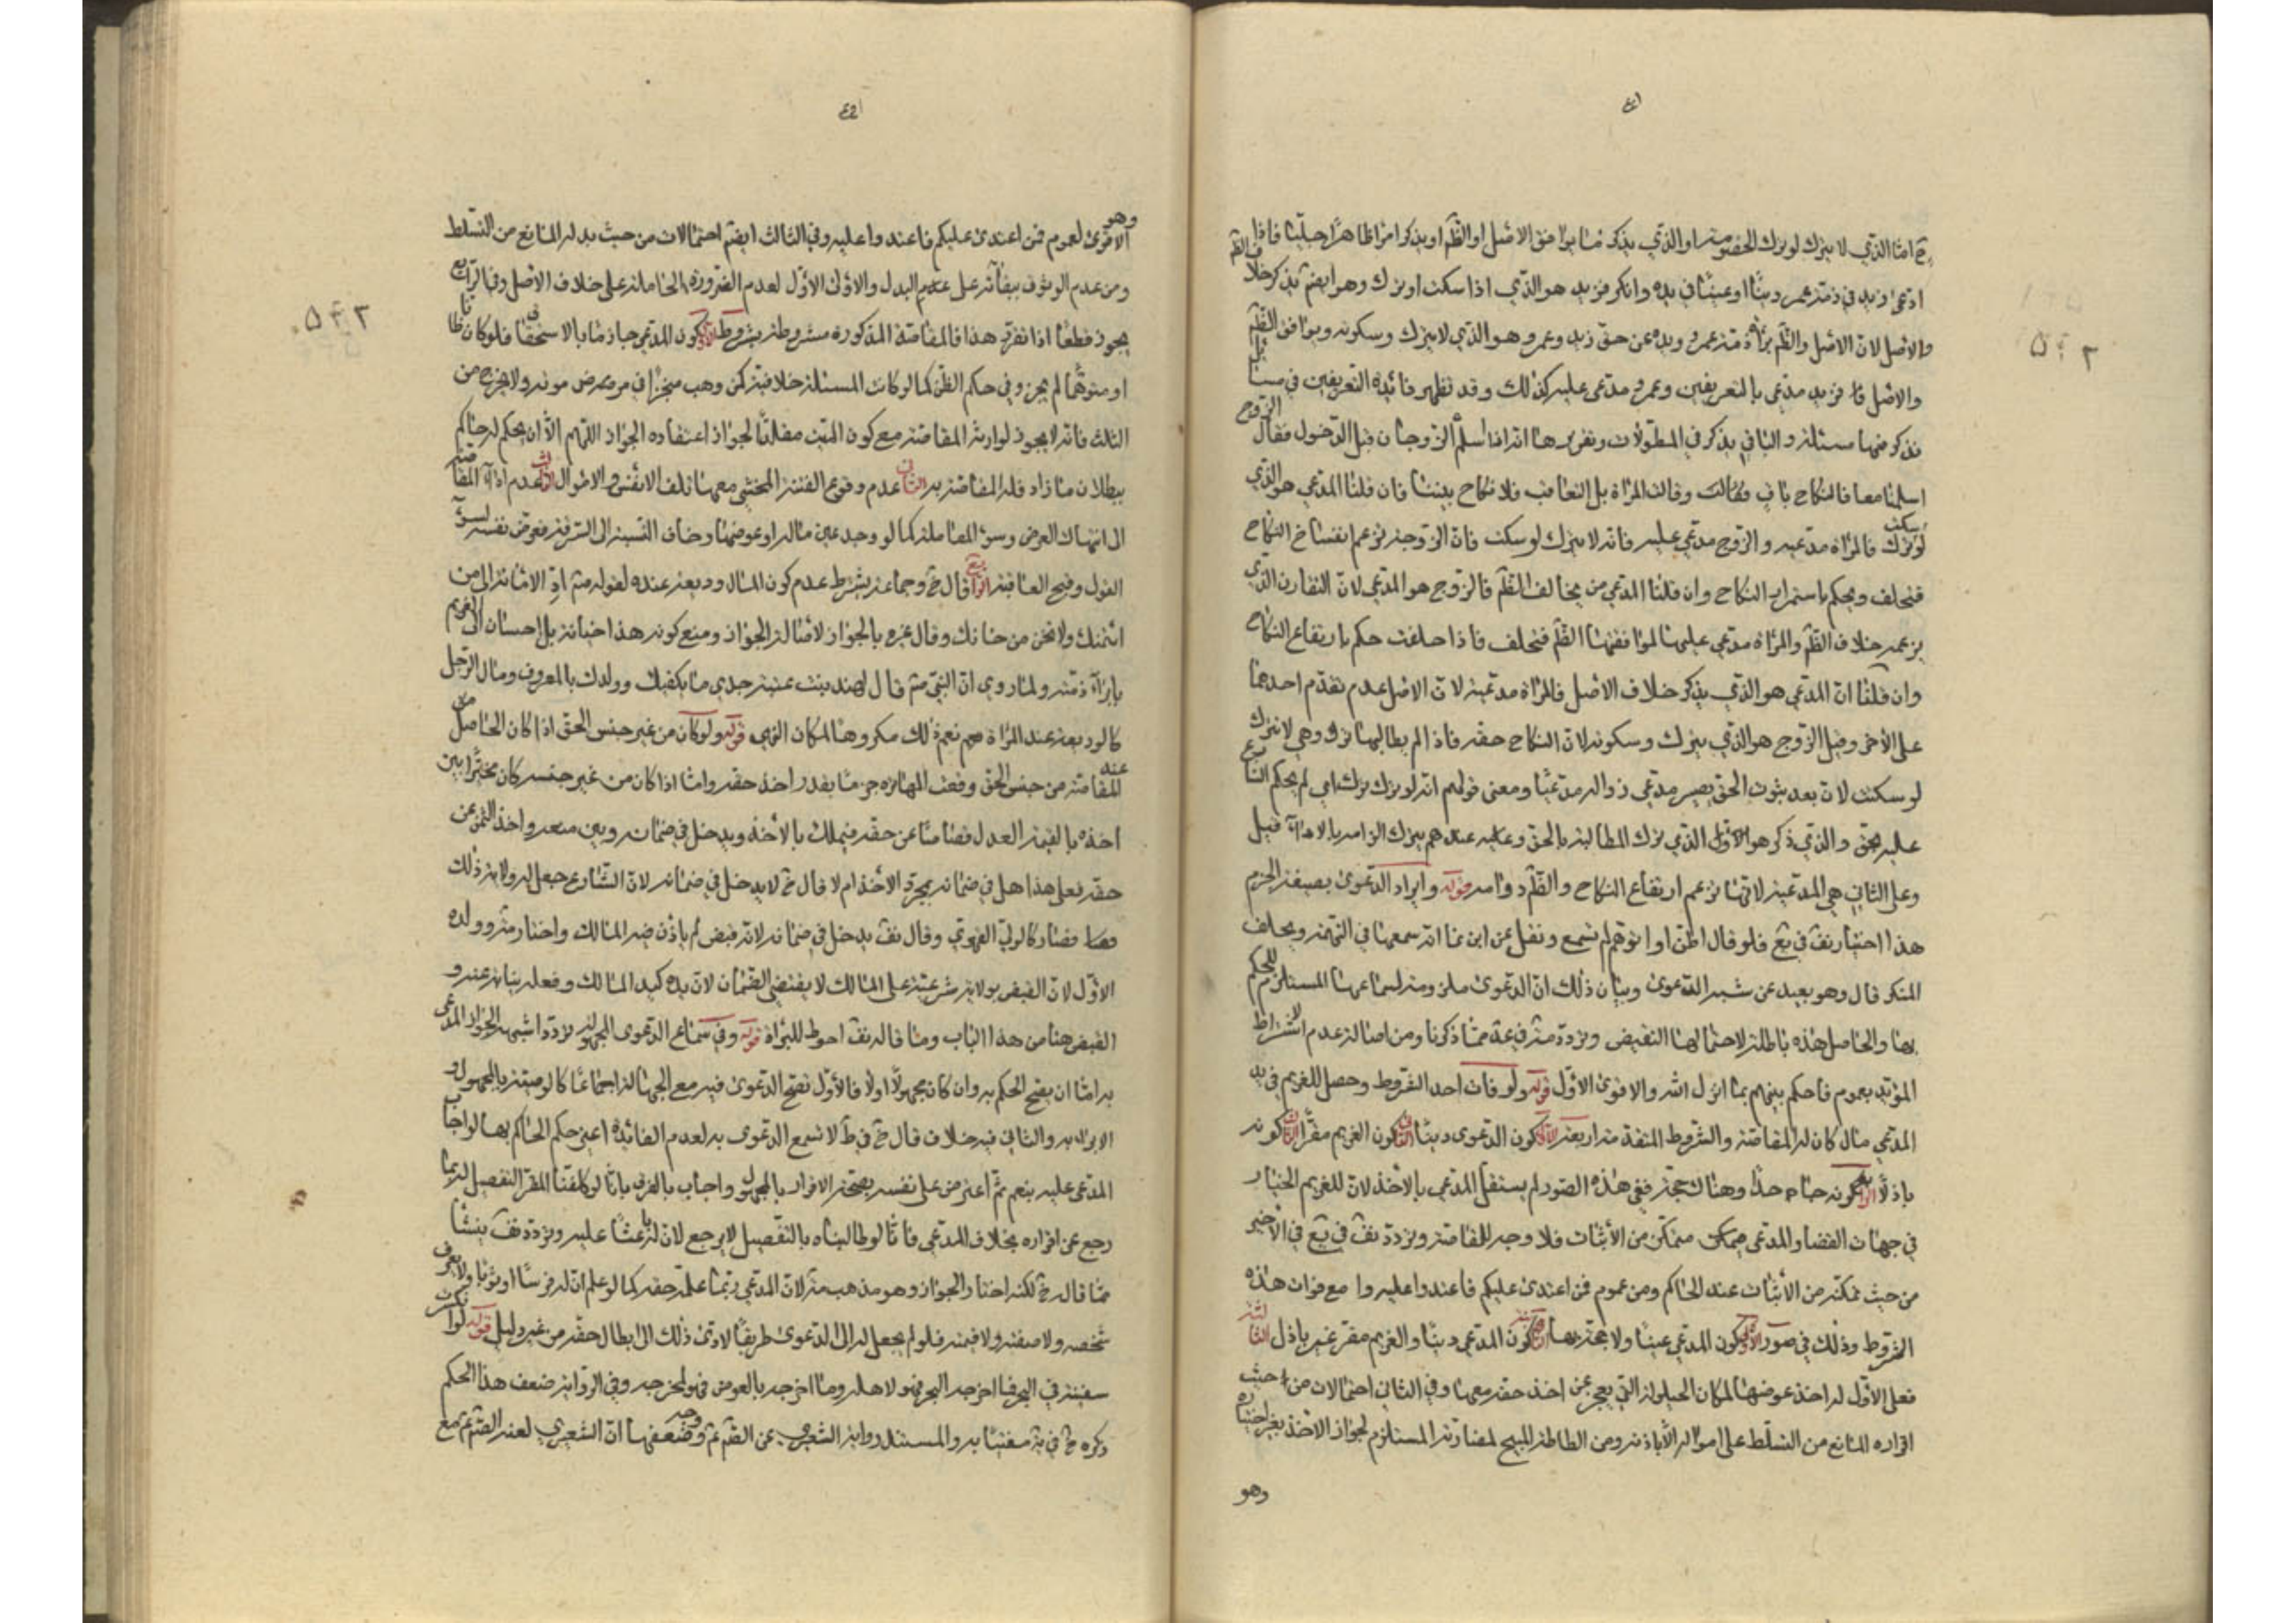 اما الذي لا يترك لو ترك الخصومة او الذي يذكر ما يوافق الاصل او الظم او يذكر امرا ظاهرا جليا فاذا
ادعى زيد في ذمة عمر دينا او عينا في يده وانكر فزيد هو الذي اذا سكت او ترك وهو ايضم يذكر خلاف الظم
والاصل لان الاصل والظم براءة ذمة عمرو ويده عن حق زيد وعمرو هو الذي لا يترك وسكوته ويوافق الظم
والاصل فزيد مدعي بالتعريفين وعمرو مدعى عليه كذلك وقد تظهر فائدة التعريفين في مسائل
نذكر منها مسئلة والباقي يذكر في المطولات وتقريرها انه اذا اسلم الزوجان قبل الدخول فقال الزوج
اسلمنا معا فالنكاح باق وقالت المراة بل التعاقب فلا نكاح بيننا فان قلنا المدعي هو الذي
لو سكت ترك فالمراة مدعية والزوج مدعى عليه فانه لا يترك لو سكت فان الزوجة تزعم انفساخ النكاح
فيحلف ويحكم باستمرار النكاح وان قلنا المدعي من يخالف الظم فالزوج هو المدعي لان التقارن الذي
يزعمه خلاف الظم والمراة مدعى عليها لموافقتها الظم فتحلف فاذا حلفت حكم بارتفاع النكاح
وان قلنا ان المدعي هو الذي يذكر خلاف الاصل فالمراة مدعية لان الاصل عدم تقدم احدهما
على الاخر وقيل الزوج هو الذي يترك وسكوته لان النكاح حقه فاذا لم يطالبها ترك وهي لا تترك
لو سكتت لان بعد ثبوت الحق يصير مدعي زواله مدعيا ومعنى قولهم انه لو ترك ترك اي لم يحكم الشارع
عليه بحق والذي ذكر هو الاول الذي ترك المطالبة بالحق وعليه عندهم يترك الزامه بالاداء قبل
وعلى الثاني هي المدعية لانها تزعم ارتفاع النكاح والظم دوامه قوله وايراد الدعوى بصيغة الجزم
هذا اختيار نف في يع فلو قال اظن او اتوهم لم تسمع ونقل عن ابن نما انه سمعها في التهمة ويحلف
المنكر قال وهو بعيد عن شبه الدعوى وبيان ذلك ان الدعوى ملزومة لسماعها المستلزم للحكم
بها والحاصل هذه باطلة لاحتمالها النقيض وتردد مثه فيه مما ذكرنا ومن اصالة عدم الاشتراط
المؤيد بعموم فاحكم بينهم بما انزل الله والاقوى الاول قوله ولو فات احد الشروط وحصل للغريم في يد
المدعي مال كان له المقاصة والشروط المتقدمة اربعة الاول كون الدعوى دينا الثاني كون الغريم مقرا الثالث كونه
باذلا الرابع كونه جاحدا وهناك حجة ففي هذه الصور لم يستقل المدعي بالاخذ لان للغريم الخيار
في جهات القضا والمدعي ممكن متمكن من الاثبات فلا وجه للمقاصة وتردد نف في يع في الاخير
من حيث تمكنه من الاثبات عند الحاكم ومن عموم فمن اعتدى عليكم فاعتدوا عليه واما مع فوات هذه
الشروط وذلك في صور الاول كون المدعي عينا ولا حجة بها الثانية كون المدعي دينا والغريم مقر غير باذل الثالثة
فعلى الاول له اخذ عوضها لمكان الحيلولة التي يعجز عن اخذ حقه معها وفي الثاني احتمالات من حيث
اقراره المانع من التسلط على امواله الا باذنه ومن المماطلة المبيح لمضارته المستلزم لجواز الاخذ بغير اختياره
وهو
وهو
الاقوى لعموم فمن اعتدى عليكم فاعتدوا عليه وفي الثالث ايضم احتمالات من حيث بذله المانع من التسلط
ومن عدم الوثوق ببقائه على عدم البدل والاول الاول لعدم الضرورة الحاملة على خلاف الاصل وفي الرابع
يجوز قطعا اذا تقرر هذا فالمقاصة المذكورة مشروطة بشروط الاول كون المدعي جازما بالاستحقاق فلو كان ظانا
او متوهما لم يجز وفي حكم الظن كما لو كانت المسئلة خلافية كمن وهب منجزا في مرض موته ولا يخرج من
الثلث فانه لا يجوز لوارثه المقاصة مع كون الميت مقلدا لجواز اعتقاده الجواز اللهم الا ان يحكم له حاكم
ببطلان ما زاد فله المقاصة به الثاني عدم وقوع الفتنة المخشي معها تلف الانفس والاموال الثالث عدم اداء المقاصة
الى انتهاك العرض وسوء المعاملة كما لو وجد عين ماله او عوضها وخاف النسبة الى السرقة فعرض نفسه لسوء
القول وقبح العاقبة الرابع قال خ وجماعة يشترط عدم كون المال وديعة عنده لقوله ص اد الامانة الى من
ائتمنك ولا تخن من خانك وقال غيره بالجواز لاصالة الجواز ومنع كون هذا خيانة بل احسان الى الغريم
بابراء ذمته ولما روي ان النبي ص قال لهند بنت عتبة خذي ما يكفيك وولدك بالمعروف ومال الرجل
كالوديعة عند المراة هم نعم ذلك مكروها لمكان النهي قوله ولو كان من غير جنس الحق اذا كان الحاصل من
عنده المقاصة من جنس الحق وقعت المهاترة جزما بقدر اخذ حقه واما اذا كان من غير جنسه كان مخيرا بين
اخذه بالقيمة العدل قصاصا عن حقه فيملك بالاخذ ويدخل في ضمانه وبين بيعه واخذ الثمن عن
حقه فعلى هذا هل في ضمانه بمجرد الاخذ ام لا قال خ لا يدخل في ضمانه لان الشارع جعل له ولاية ذلك
فصار كالولي القهري وقال نف يدخل في ضمانه لانه قبض لم ياذن فيه المالك واختار مثه وولده
الاول لان القبض بولاية شرعية على المالك لا يقتضي الضمان لان يده كيد المالك وفعله نيابة عنه و
القبض هنا من هذا الباب وما قاله نف احوط للبراة قوله وفي سماع الدعوى المجهولة تردد اشبهه الجواز المدعى
به اما ان يصح الحكم به وان كان مجهولا اولا فالاول تصح الدعوى فيه مع الجهالة اجماعا كالوصية بالمجهول و
الاقرار به والثاني فيه خلاف قال خ في ط لا تسمع الدعوى به لعدم الفائدة اعني حكم الحاكم بها لو اجاب
المدعى عليه بنعم ثم اعترض على نفسه بصحة الاقرار بالمجهول واجاب بالفرق بانا لو كلفنا المقر التفصيل لربما
رجع عن اقراره بخلاف المدعي فانا لو طالبناه بالتفصيل لا يرجع لان له باعثا عليه وتردد نف ينشأ
مما قال خ لكنه اختار الجواز وهو مذهب مثه لان المدعي ربما علم حقه كما لو علم ان له فرسا او ثوبا ولا يعرف
شخصه ولا صفته ولا قيمته فلو لم يجعل له الى الدعوى طريقا لادى ذلك الى ابطال حقه من غير دليل قوله لو انكسرت
سفينة في البحر فما اخرجه البحر فهو لاهله وما اخرج بالغوص فهو لمخرجه وفي الرواية ضعف هذا الحكم
ذكره خ في ية مفتيا به والمستند رواية الشعيري عن الصم ع ووجه ضعفها ان الشعيري